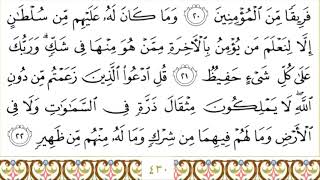 فَرِيقًا مِّنَ ٱلْمُؤْمِنِينَ ٢٠ وَمَا كَانَ لَهُۥ عَلَيْهِم مِّن سُلْطَٰنٍ
إِلَّا لِنَعْلَمَ مَن يُؤْمِنُ بِٱلْءَاخِرَةِ مِمَّنْ هُوَ مِنْهَا فِى شَكٍّ ۗ وَرَبُّكَ
عَلَىٰ كُلِّ شَىْءٍ حَفِيظٌ ٢١ قُلِ ٱدْعُوا۟ ٱلَّذِينَ زَعَمْتُم مِّن دُونِ
ٱللَّهِ ۖ لَا يَمْلِكُونَ مِثْقَالَ ذَرَّةٍ فِى ٱلسَّمَٰوَٰتِ وَلَا فِى
ٱلْأَرْضِ وَمَا لَهُمْ فِيهِمَا مِن شِرْكٍ وَمَا لَهُۥ مِنْهُم مِّن ظَهِيرٍ ٢٢
٤٣٠